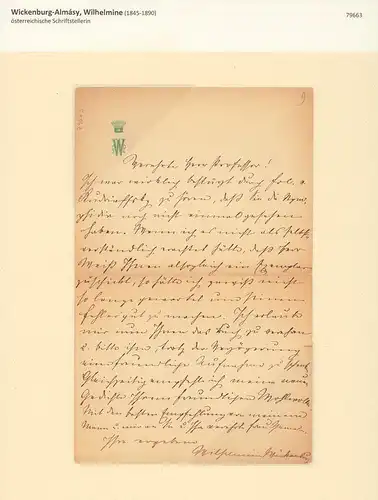 Wickenburg-Almásy, Wilhelmine (1845-1890)
österreichische Schriftstellerin
79663
9
W
Verehrter Herr Professor!
Ich war wirklich bestürzt durch Frl. v.
zu hören, daß Sie die
noch nicht einmal gesehen
haben. Wenn ich es nicht als selbst-
verständlich erachtet hätte, daß Herr
Weiß Ihnen alsogleich ein Exemplar
zuschickt, so hätte ich gewiß nicht
so lange gewartet und seinen
Fehler gut zu machen. Ich erlaube
mir nun Ihnen das Buch zu
u. bitte ihm, trotz der Verzögerung
eine freundliche Aufnahme zu
Gleichzeitig empfehle ich meine neuen
Gedichte Ihrem freundlichen Wohlwollen.
Mit den besten Empfehlungen von meinem
Mann u. mir an Sie u. Ihre verehrte Frau
Ihre ergebene
Wilhelmine Wickenburg